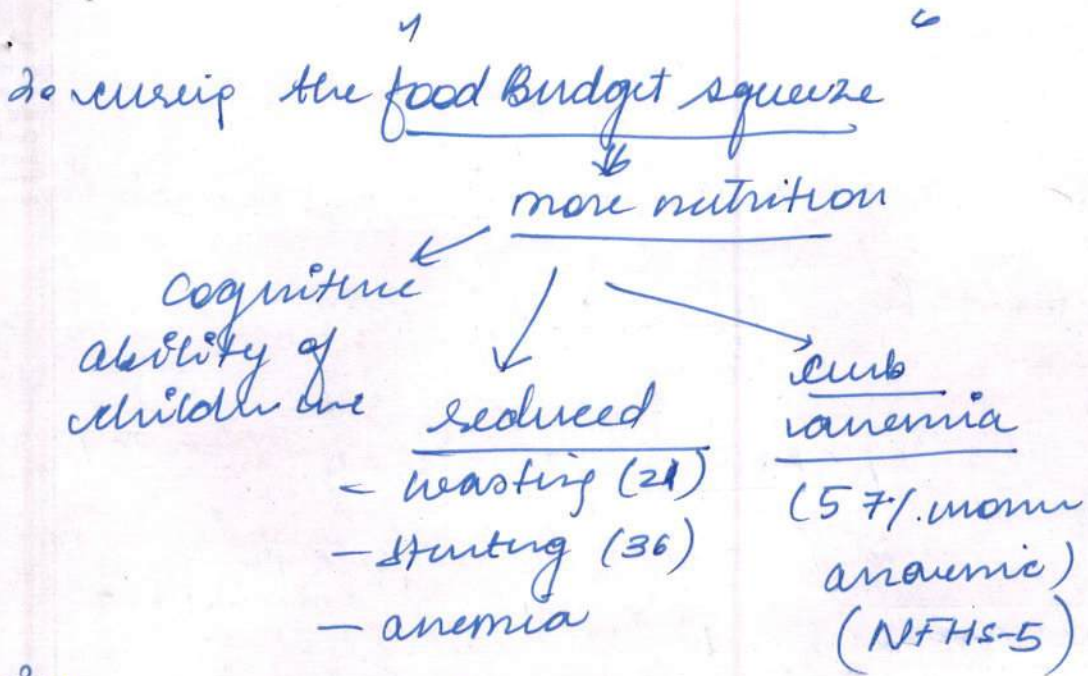 2. the food Budget squeeze
more nutrition
Cognitive
ability of
reduced
- wasting (21)
- stunting (36)
- anemia
curb
anemia
(57%
anaemic)
(NFHS-5)